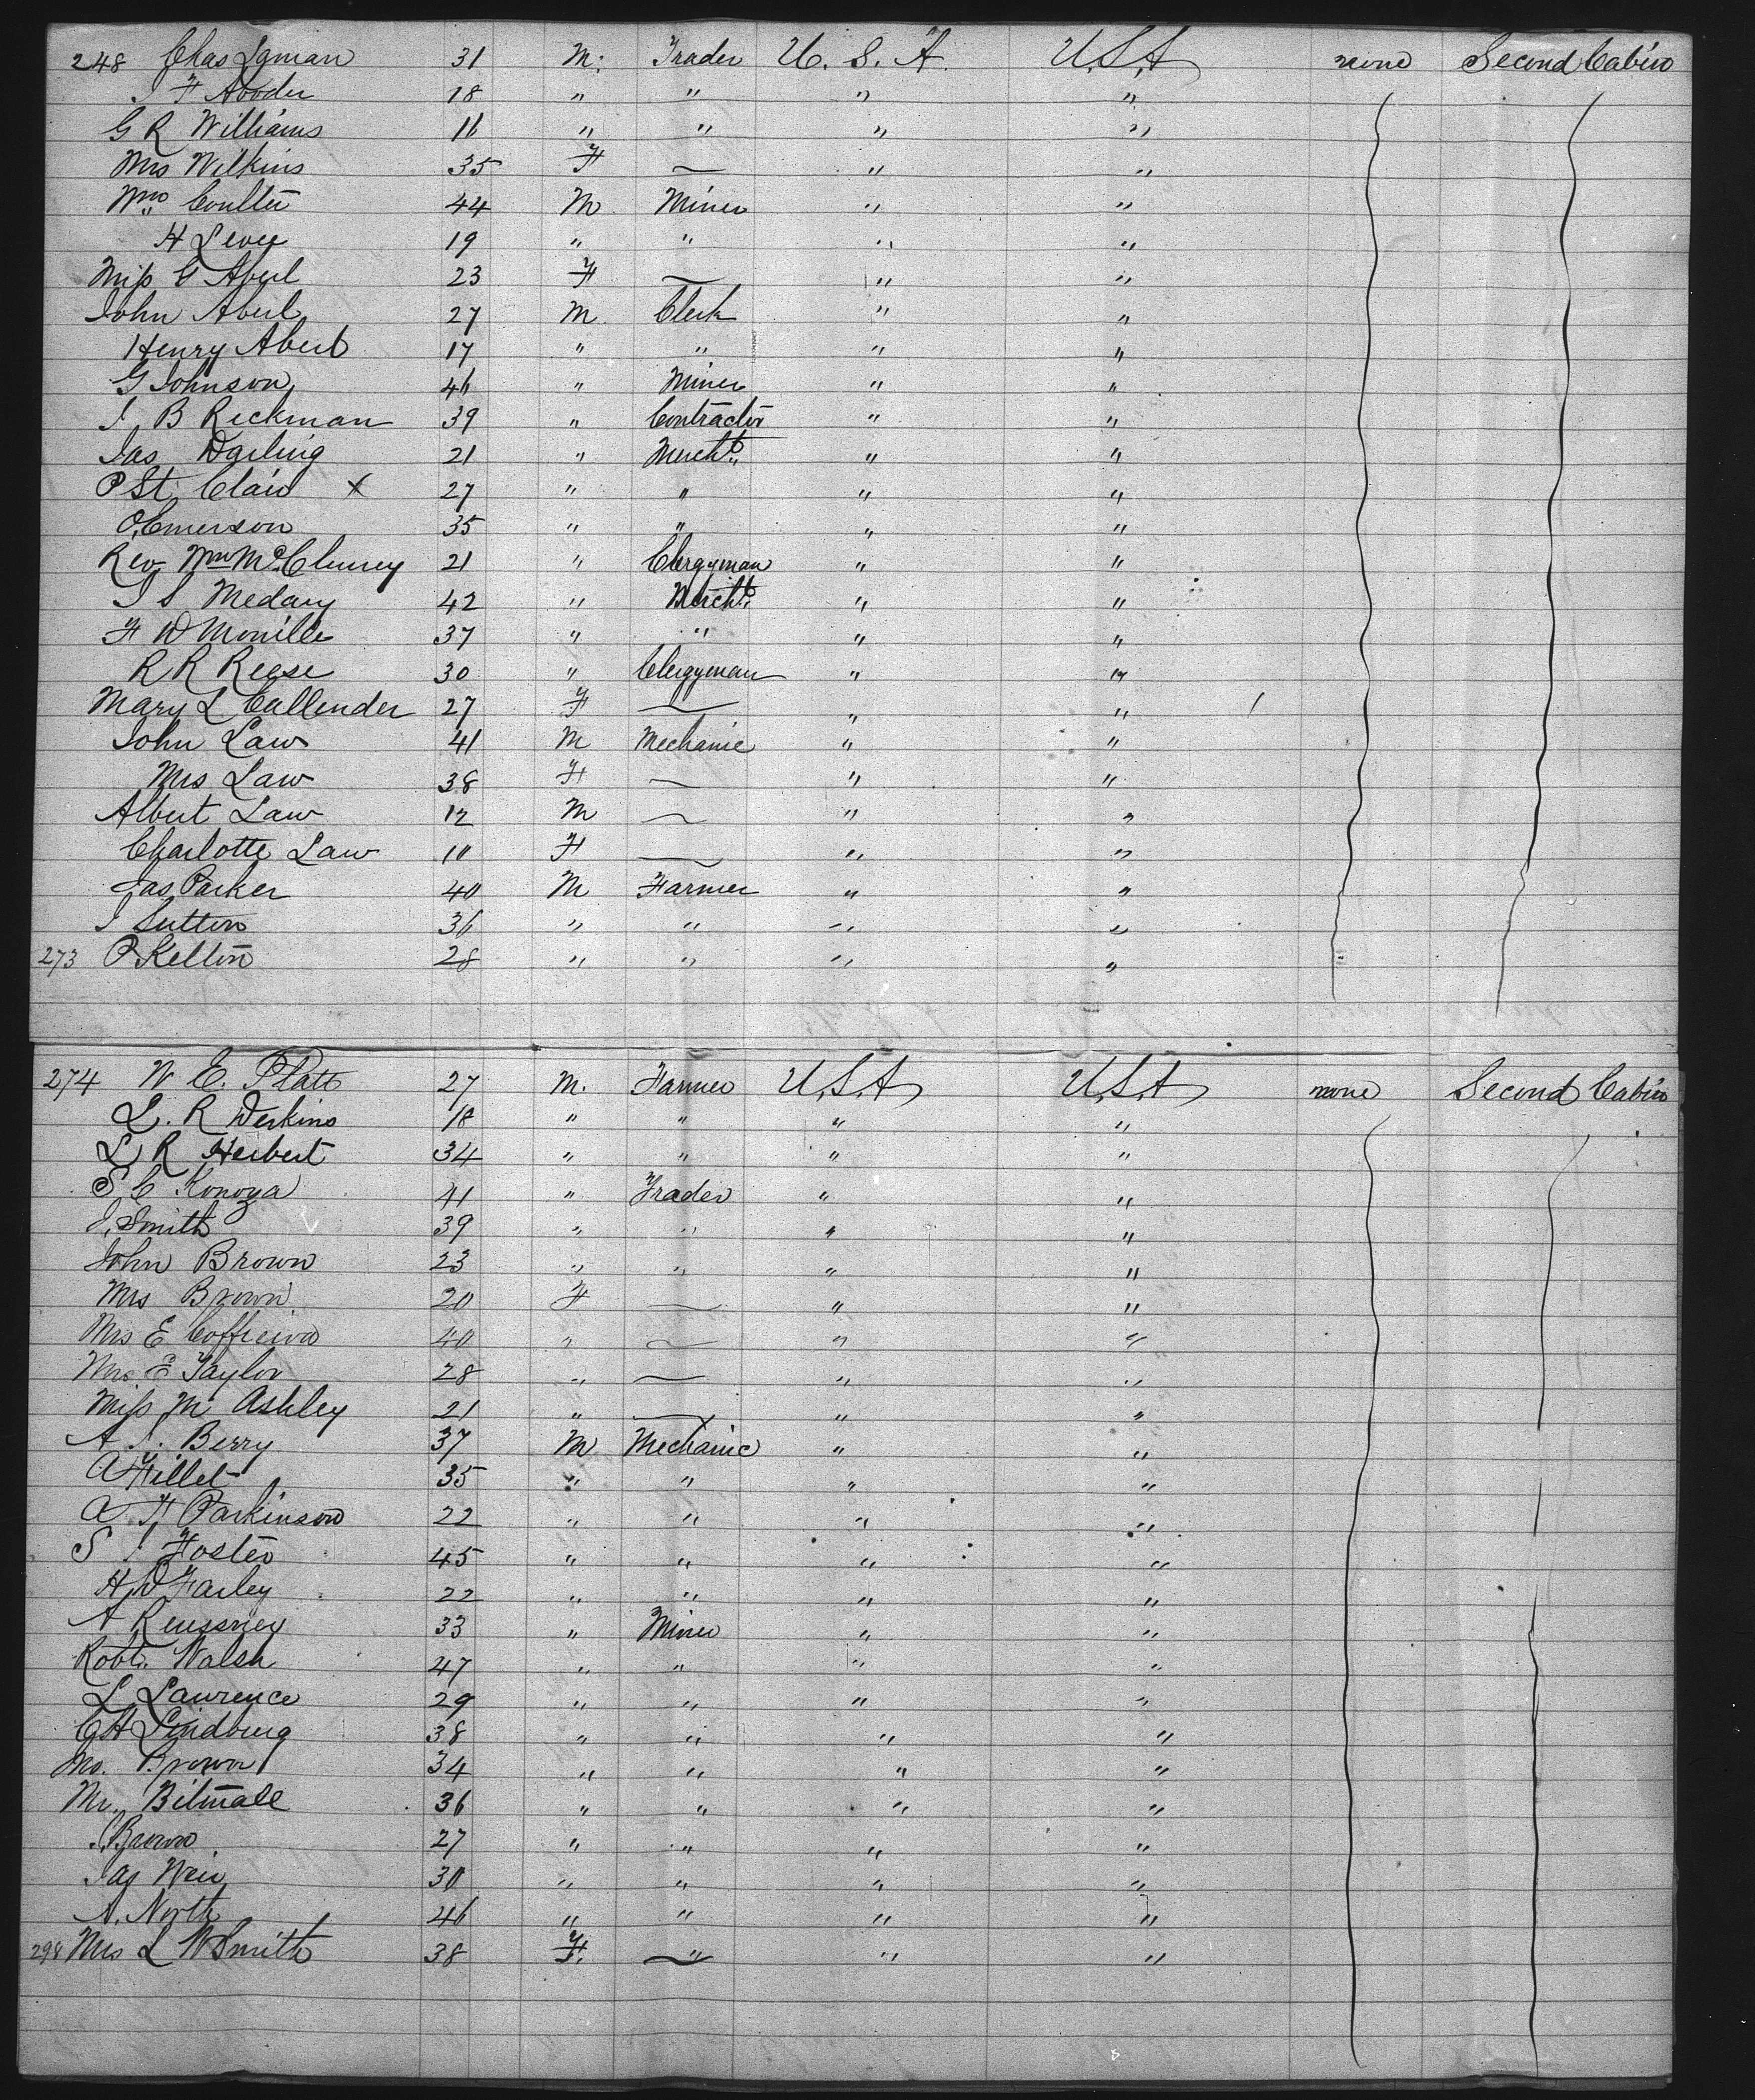 248 Chas Lyman 31 M. Trader U. S. A. U.S.A none Second Cabin
J F 18 " " " "
G R Williams 16 " " " "
Mrs Wilkins 35 F — " "
Wm Coulter 44 M Miner " "
H Levey 19 " " " "
Miss G Abul 23 F — " "
John Abul 27 M Clerk " "
Henry Abul 17 " " " "
G Johnson 46 " Miner " "
J. B Reckman 39 " Contractor " "
Jas Darling 21 " Mercht. " "
P St. Clair X 27 " " " "
O. Emerson 35 " " " "
Rev Wm Mc 21 " Clergyman " "
J S Medary 42 " Mercht. " "
F W 37 " " " "
R R Reese 30 " Clergyman " "
Mary L Callender 27 F — " "
John Law 41 M Mechanic " "
Mrs Law 38 F — " "
Albert Law 12 M — " "
Charlotte Law 10 F — " "
Jas Parker 40 M Farmer " "
J Sutton 36 " " " "
273 P Kelton 28 " " " "
274 W E. Platt 27 M. Farmer U.S.A U.S.A none Second Cabin
L. R Derkins 18 " " " "
L R Herbert 34 " " " "
S C Konoza 41 " Trader " "
J. Smith 39 " " " "
John Brown 23 " " " "
Mrs Brown 20 F — " "
Mrs E 40 " — " "
Mrs E Taylor 28 " — " "
Miss M Ashley 21 " — " "
A J. Berry 37 M Mechanic " "
A 35 " " " "
A H Parkinson 22 " " " "
S J Foster 45 " " " "
H D Farley 22 " " " "
A 33 " Miner " "
Robt. Walsh 47 " " " "
L Lawrence 29 " " " "
C A Lindburg 38 " " " "
Jno. Brown 34 " " " "
Mr. 36 " " " "
J. Brown 27 " " " "
Jas Weir 30 " " " "
A. North 46 " " " "
298 Mrs L W Smith 38 F. — " "